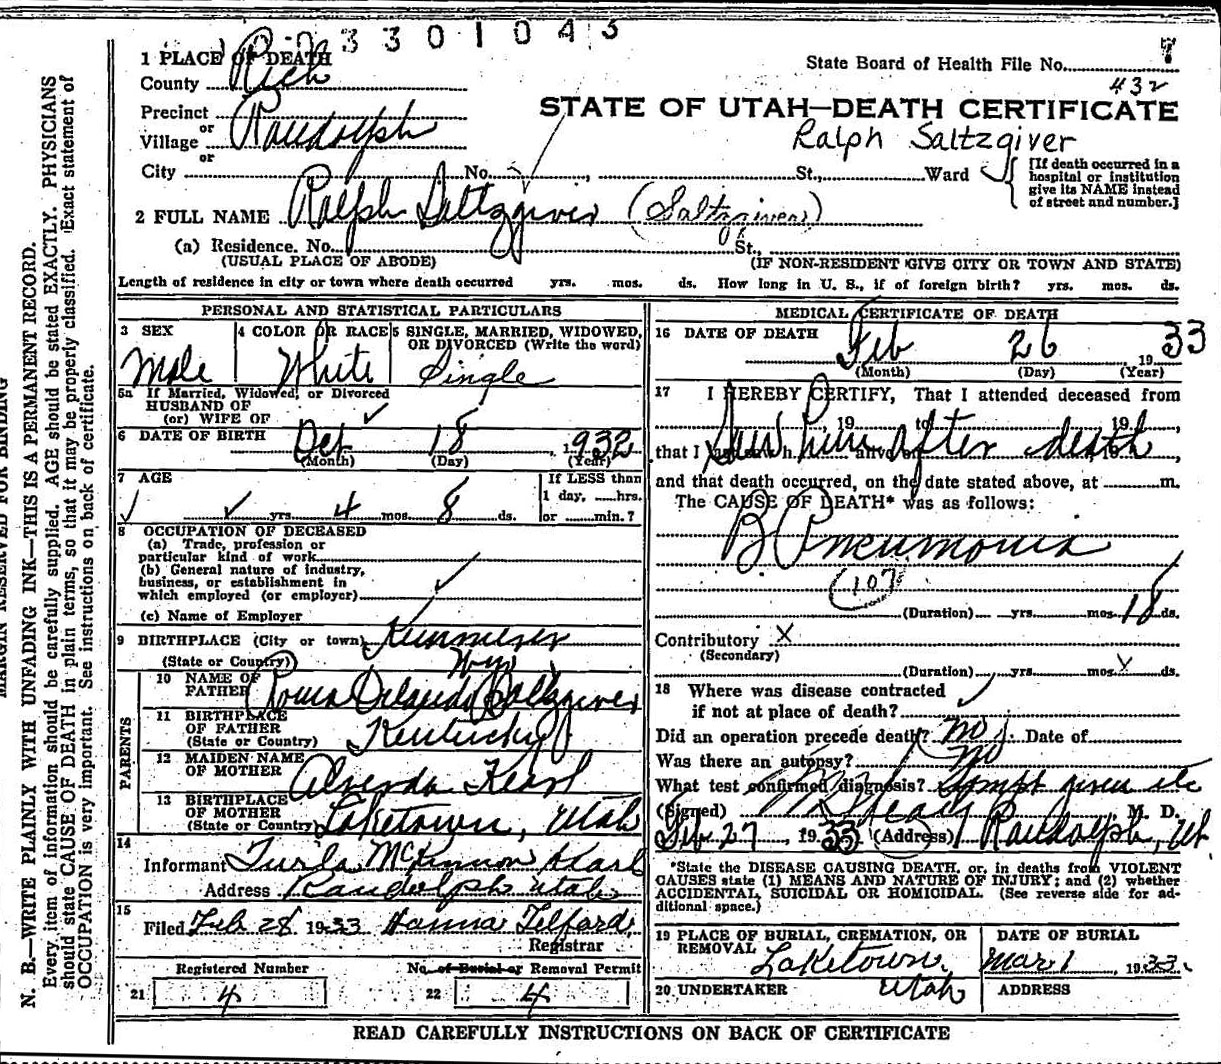 3301045
1 PLACE OF DEATH
State Board of Health File No. 7
County Rich
432
Precinct
STATE OF UTAH—DEATH CERTIFICATE
or
Village Randolph
Ralph Saltzgiver
or
City No. , St., Ward
[If death occurred in a hospital or institution give its NAME instead of street and number.]
2 FULL NAME Ralph Saltzgiver (Saltzgiver)
(a) Residence. No. St.,
(USUAL PLACE OF ABODE) (IF NON-RESIDENT GIVE CITY OR TOWN AND STATE)
Length of residence in city or town where death occurred yrs. mos. ds. How long in U. S., if of foreign birth? yrs. mos. ds.
PERSONAL AND STATISTICAL PARTICULARS
3 SEX Male
4 COLOR OR RACE White
5 SINGLE, MARRIED, WIDOWED, OR DIVORCED (Write the word) Single
5a If Married, Widowed, or Divorced
HUSBAND OF
(or) WIFE OF
6 DATE OF BIRTH Oct 18, 1932
(Month) (Day) (Year)
7 AGE yrs. 4 mos. 8 ds.
If LESS than
1 day, hrs.
or min.?
8 OCCUPATION OF DECEASED
(a) Trade, profession or
particular kind of work
(b) General nature of industry,
business, or establishment in
which employed (or employer)
(c) Name of Employer
9 BIRTHPLACE (City or town) Kemmerer
(State or Country) Wyo
PARENTS
10 NAME OF FATHER Orlando Saltzgiver
11 BIRTHPLACE OF FATHER (State or Country) Kentucky
12 MAIDEN NAME OF MOTHER Kearl
13 BIRTHPLACE OF MOTHER (State or Country) Laketown, Utah
14 Informant Turla McKinnon Kearl
Address Randolph Utah
15 Filed Feb 28 1933 Hanna Telford
Registrar
Registered Number No. of Burial or Removal Permit
21 4 22 4
MEDICAL CERTIFICATE OF DEATH
16 DATE OF DEATH Feb 26, 1933
(Month) (Day) (Year)
17 I HEREBY CERTIFY, That I attended deceased from
, 19 to , 19 ,
that I Saw him after death
and that death occurred, on the date stated above, at m.
The CAUSE OF DEATH* was as follows:
B Pneumonia
(107)
(Duration) yrs. mos. 18 ds.
Contributory X
(Secondary)
(Duration) yrs. mos. ds.
18 Where was disease contracted
if not at place of death?
Did an operation precede death? No. Date of
Was there an autopsy? No
What test confirmed diagnosis? Sympt given etc
(Signed) M. D.
Feb 27, 1933 (Address) Randolph, Ut.
*State the DISEASE CAUSING DEATH, or, in deaths from VIOLENT
CAUSES state (1) MEANS AND NATURE OF INJURY; and (2) whether
ACCIDENTAL, SUICIDAL OR HOMICIDAL. (See reverse side for ad-
ditional space.)
19 PLACE OF BURIAL, CREMATION, OR REMOVAL Laketown, Utah
DATE OF BURIAL Mar 1, 1933
20 UNDERTAKER ADDRESS
READ CAREFULLY INSTRUCTIONS ON BACK OF CERTIFICATE
MARGIN RESERVED FOR BINDING
N. B.—WRITE PLAINLY WITH UNFADING INK—THIS IS A PERMANENT RECORD.
Every item of information should be carefully supplied. AGE should be stated EXACTLY. PHYSICIANS
should state CAUSE OF DEATH in plain terms, so that it may be properly classified. Exact statement of
OCCUPATION is very important. See instructions on back of certificate.